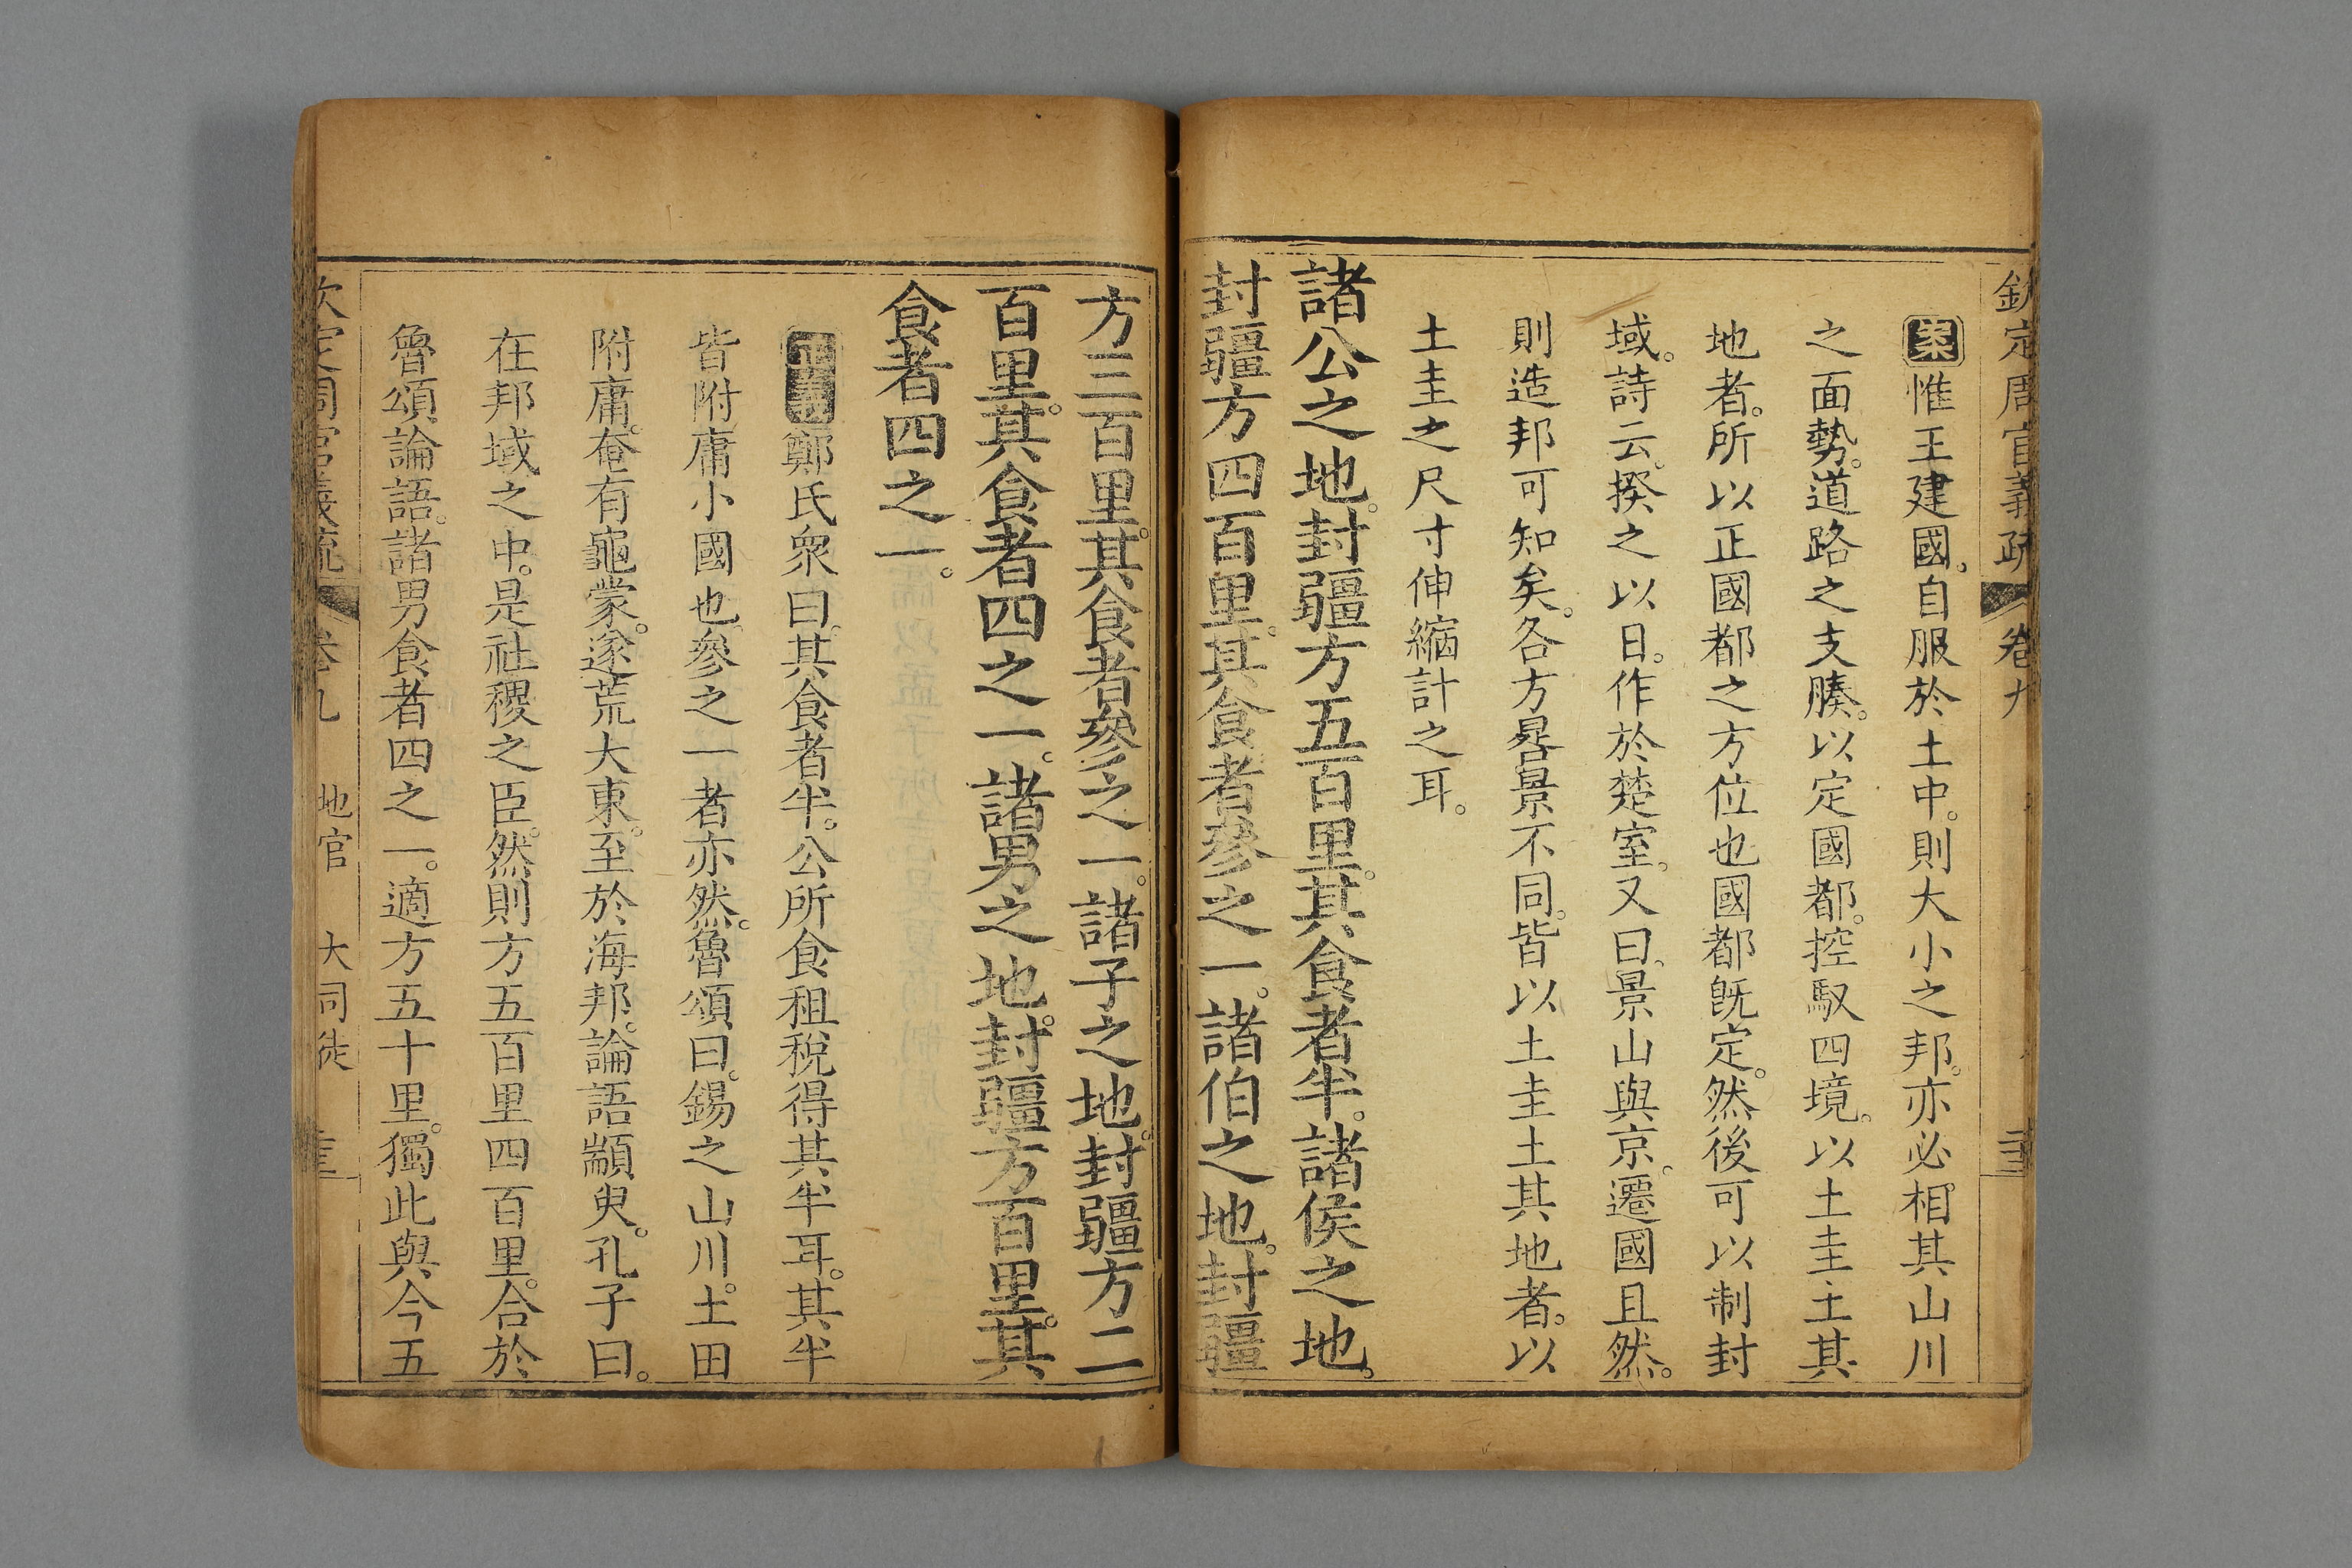 欽定周官義疏 卷九
案惟王建國。自服於土中。則大小之邦。亦必相其山川
之面勢。道路之支腠。以定國都。控馭四境。以土圭土其
地者。所以正國都之方位也國都既定。然後可以制封
域。詩云。揆之以日。作於楚室。又曰。景山與京。遷國且然。
則造邦可知矣。各方晷景不同。皆以土圭土其地者。以
土圭之尺寸伸縮計之耳。
諸公之地。封疆方五百里。其食者半。諸侯之地。
封疆方四百里。其食者參之一。諸伯之地。封疆
方三百里。其食者參之一。諸子之地。封疆方二
百里。其食者四之一。諸男之地。封疆方百里。其
食者四之一。
正義鄭氏衆曰。其食者半。公所食租稅得其半耳。其半
皆附庸小國也。參之一者亦然。魯頌曰。錫之山川。土田
附庸。奄有龜蒙。遂荒大東。至於海邦。論語顓臾。孔子曰。
在邦域之中。是社稷之臣。然則方五百里四百里。合於
魯頌論語。諸男食者四之一。適方五十里。獨此與今五
欽定周官義疏 卷九 地官 大司徒